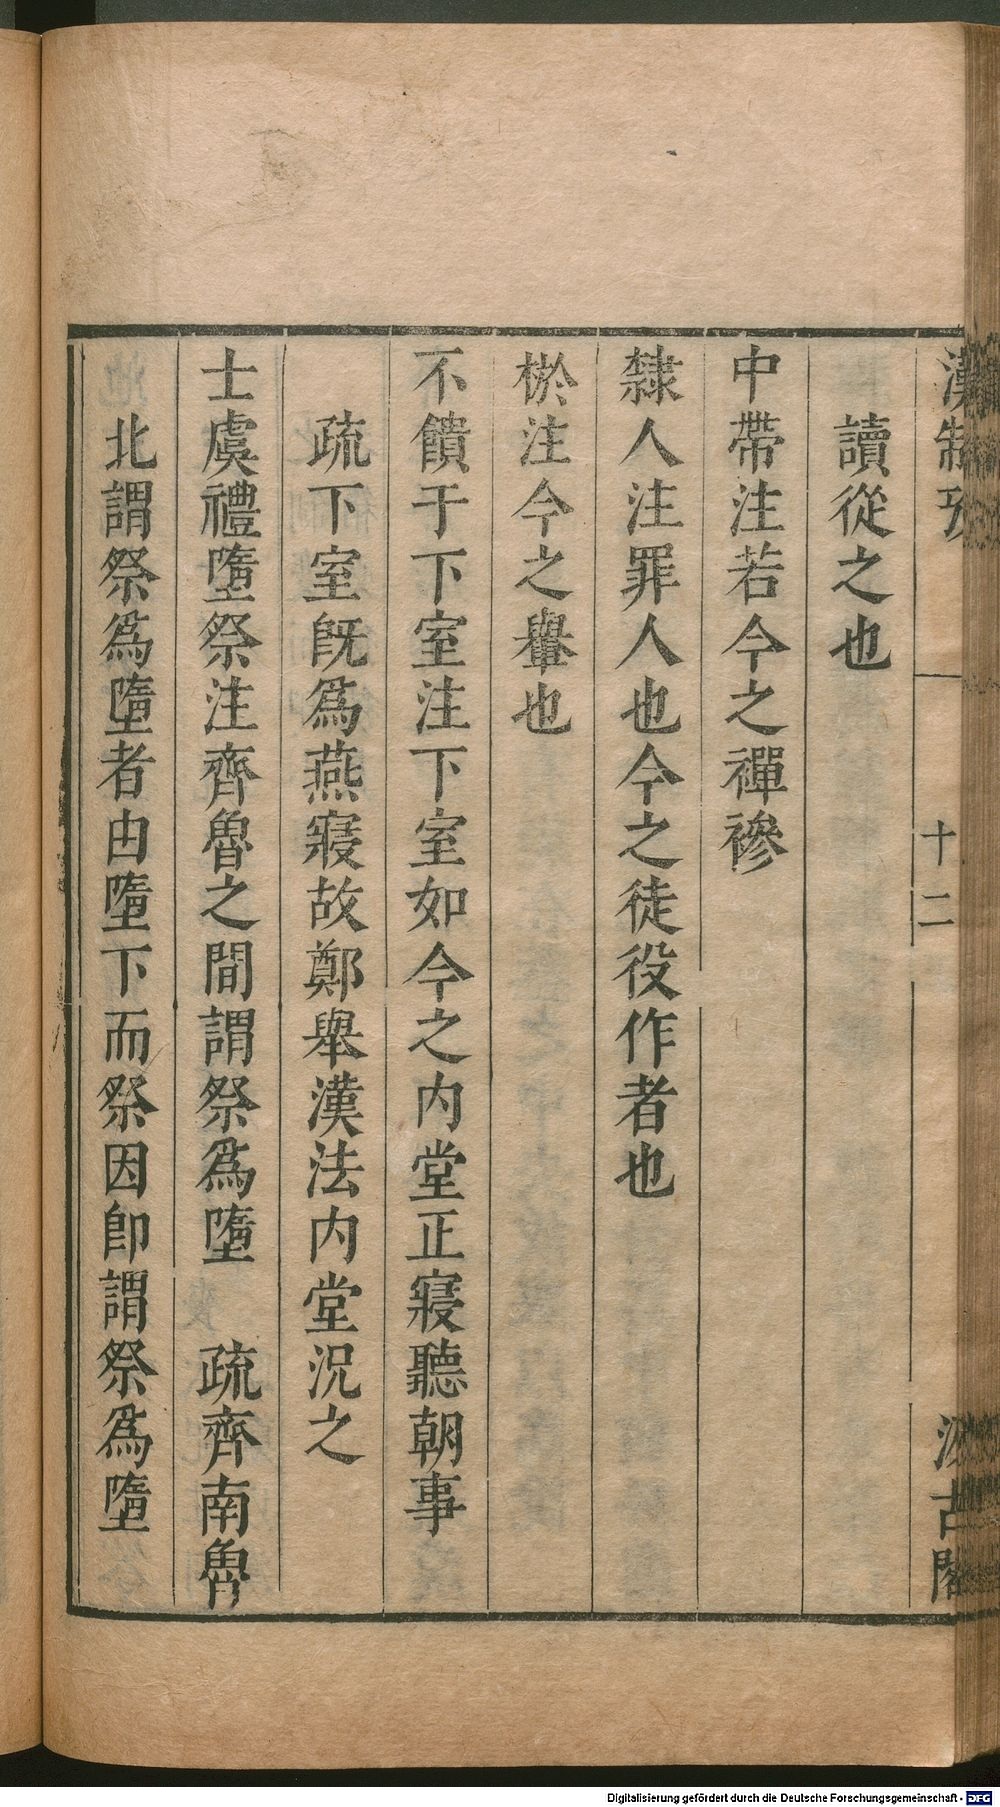 漢制攷
十二
汲古閣
讀從之也
中帶注若今之襌襂
隸人注罪人也今之徒役作者也
棜注今之轝也
不饋于下室注下室如今之内堂正寢聽朝事
疏下室旣爲燕寢故鄭舉漢法内堂況之
士虞禮墮祭注齊魯之間謂祭爲墮　疏齊南魯
北謂祭爲墮者由墮下而祭因卽謂祭爲墮
Digitalisierung gefördert durch die Deutsche Forschungsgemeinschaft - DFG